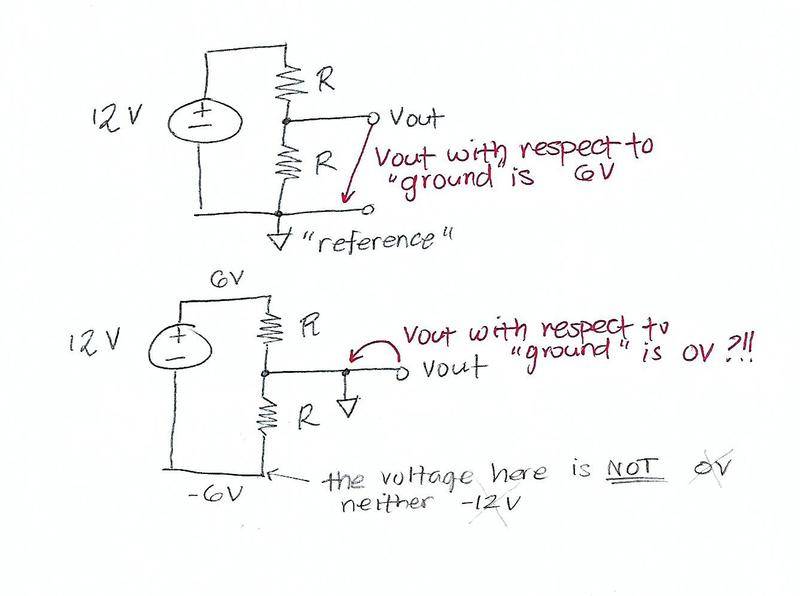 12V
+
−
R
R
Vout
Vout with respect to
"ground" is 6V
"reference"
6V
12V
+
−
R
R
Vout with respect to
"ground" is 0V ?!!
Vout
-6V
the voltage here is NOT 0V
neither -12V